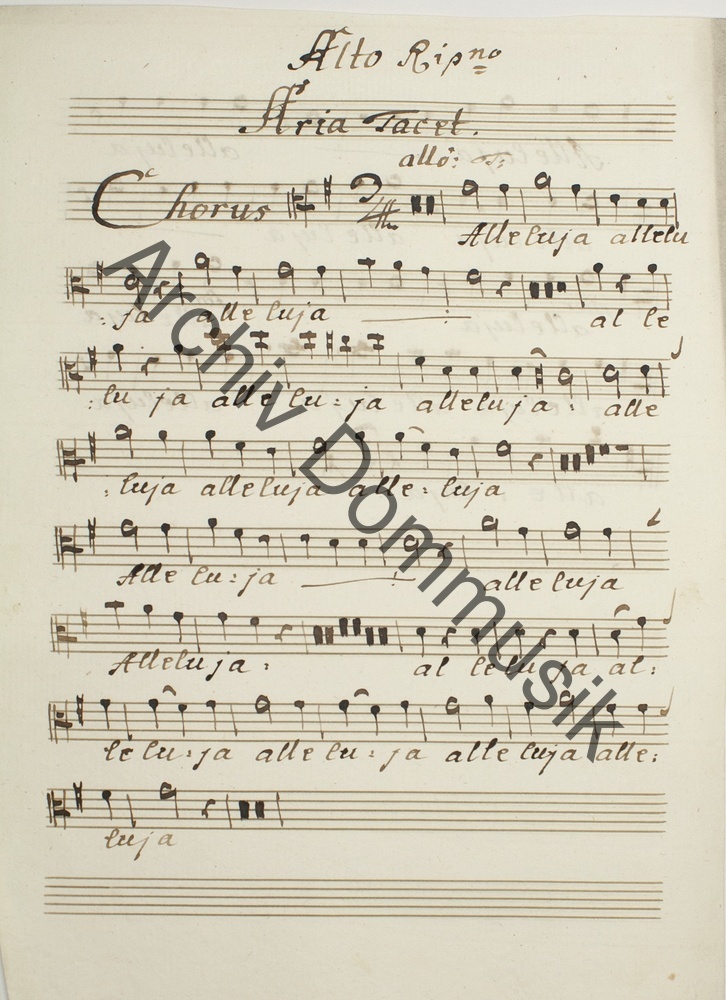 Alto Rip:no
Aria Tacet.
allo:
Chorus
Alleluja allelu
: ja alleluja
al le
: lu ja allelu : ja alleluja : alle
: luja alleluja alle : luja
Allelu : ja alleluja
Alleluja : al leluja al :
lelu : ja allelu : ja alleluja alle :
luja
Archiv Dommusik